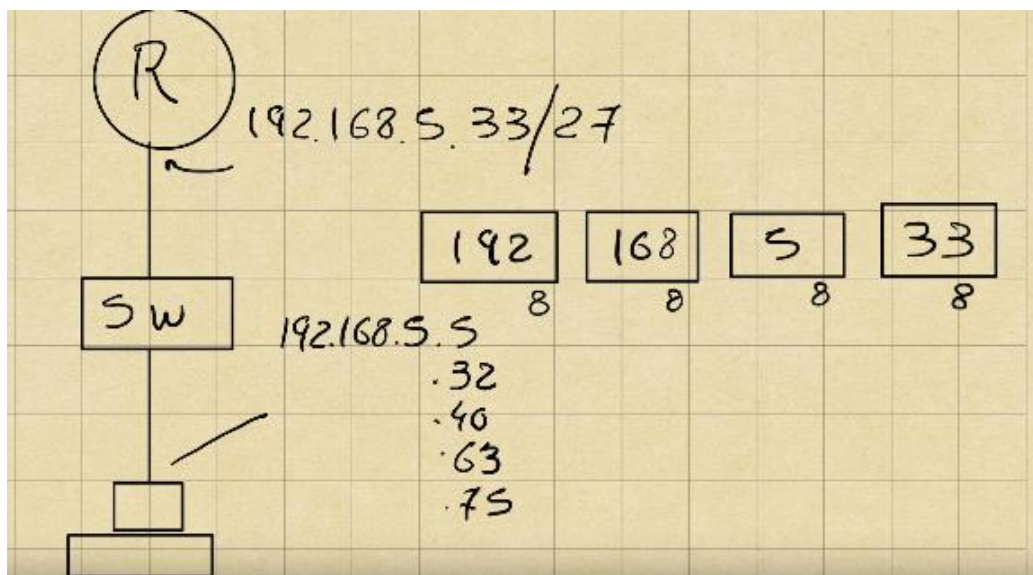 R
192.168.5.33/27
192 168 5 33
8 8 8 8
SW
192.168.5.5
.32
.40
.63
.75